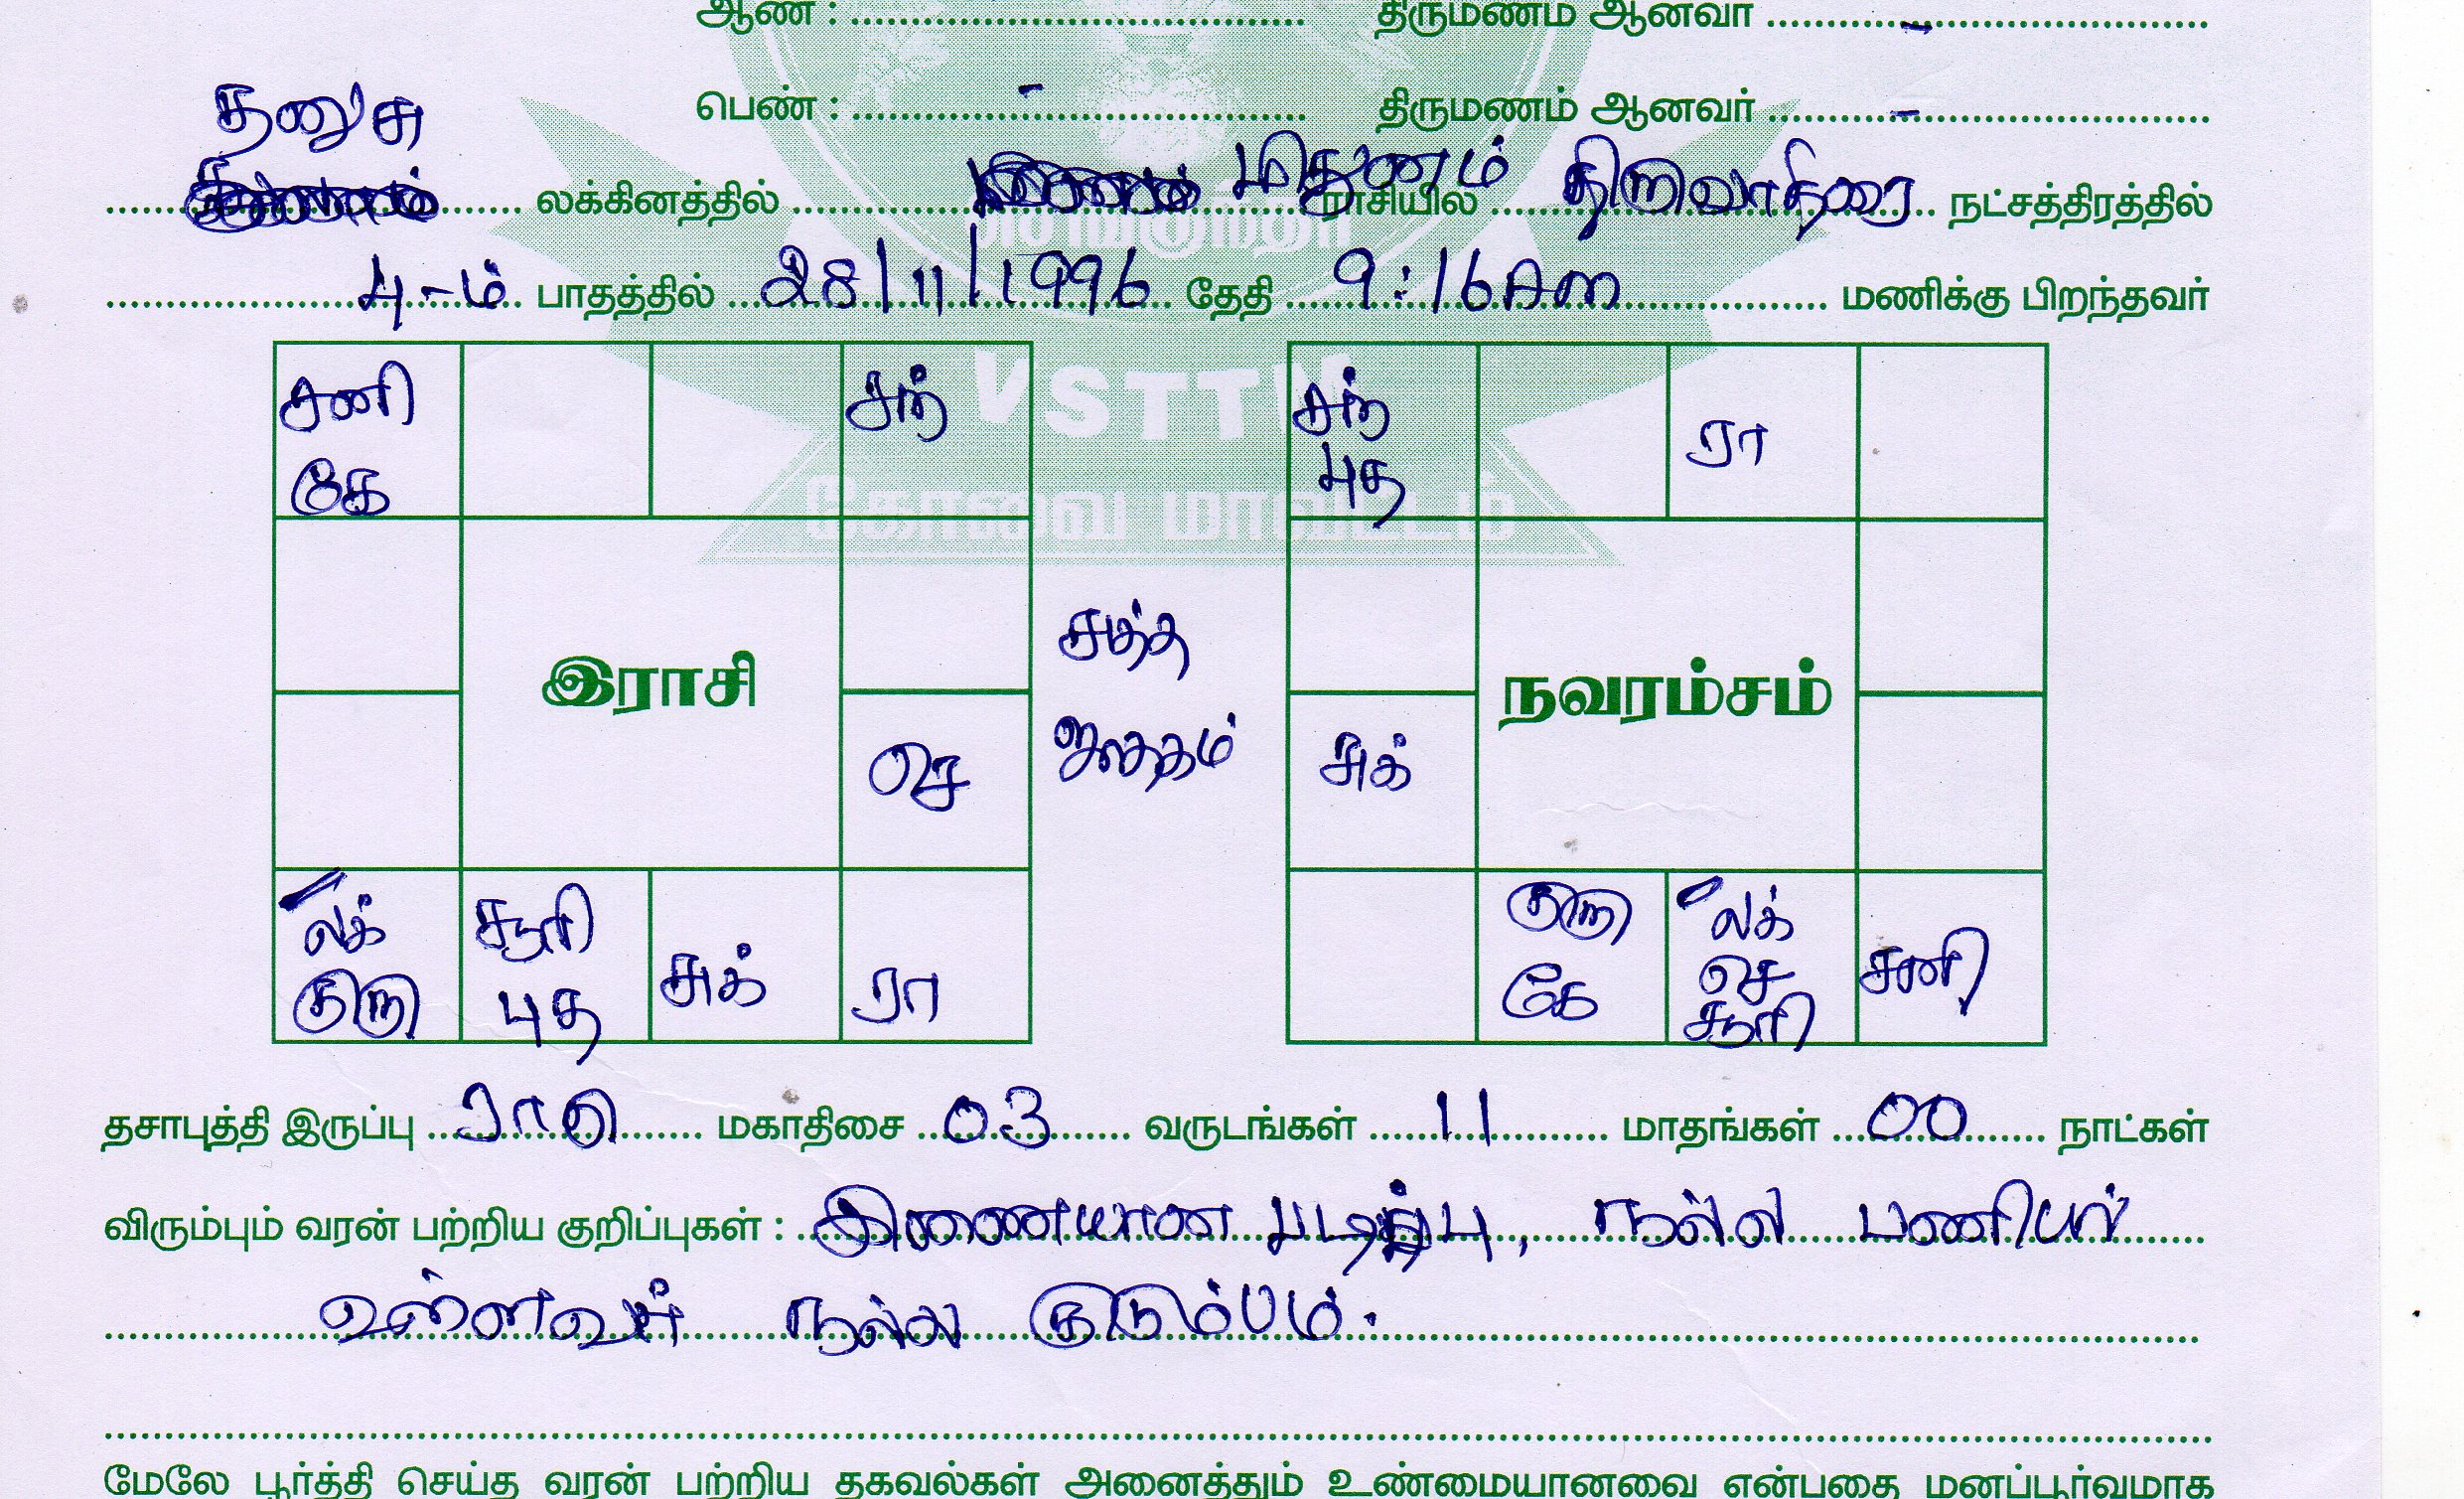 ஆண் : ........ திருமணம் ஆனவர் ........ -
பெண் : ........ - திருமணம் ஆனவர் ........ -
தனுசு
........ லக்கினத்தில் ........ மிதுணம் ராசியில் திறுவாதிரை நட்சத்திரத்தில்
4-ம் பாதத்தில் 28/11/1996 தேதி 9:16 Am மணிக்கு பிறந்தவர்
சனி கே
சந்
செ
லக் குரு
சூரி புத
சுக்
ரா
இராசி
VSTTM
கோவை மாவட்டம்
சுத்த
ஜாதகம்
சந் புத
ரா
சுக்
குரு கே
லக் செ சூரி
சனி
நவரம்சம்
தசாபுத்தி இருப்பு ராகு மகாதிசை 03 வருடங்கள் 11 மாதங்கள் 00 நாட்கள்
விரும்பும் வரன் பற்றிய குறிப்புகள் : இணையான படிப்பு, நல்ல பணியில்
உள்ளவர் நல்ல குடும்பம்.
மேலே பூர்த்தி செய்த வரன் பற்றிய தகவல்கள் அனைத்தும் உண்மையானவை என்பதை மனப்பூர்வமாக